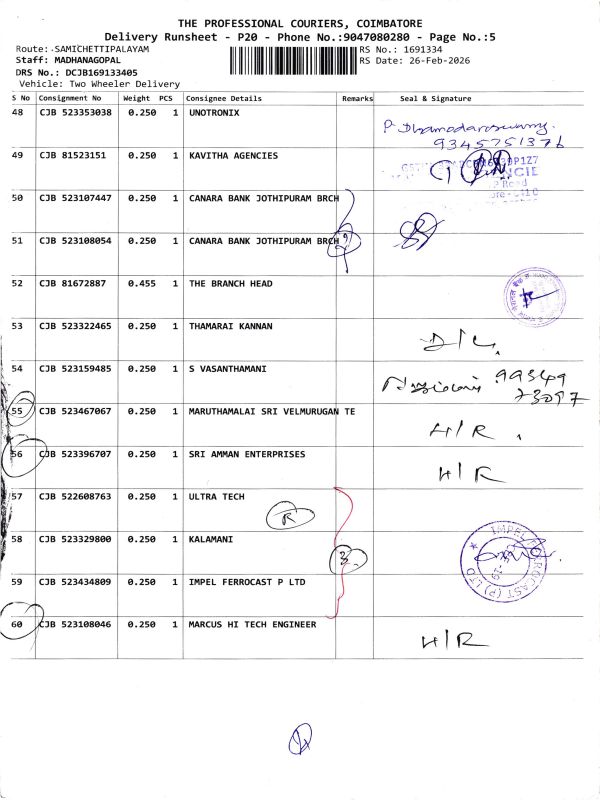 THE PROFESSIONAL COURIERS, COIMBATORE
Delivery Runsheet - P20 - Phone No.:9047080280 - Page No.:5
Route: SAMICHETTIPALAYAM
RS No.: 1691334
Staff: MADHANAGOPAL
RS Date: 26-Feb-2026
DRS No.: DCJB169133405
Vehicle: Two Wheeler Delivery
S No Consignment No Weight PCS Consignee Details Remarks Seal & Signature
48 CJB 523353038 0.250 1 UNOTRONIX
P. Dhamodaraswamy.
9345751376
49 CJB 81523151 0.250 1 KAVITHA AGENCIES
50 CJB 523107447 0.250 1 CANARA BANK JOTHIPURAM BRCH
51 CJB 523108054 0.250 1 CANARA BANK JOTHIPURAM BRCH 2
52 CJB 81672887 0.455 1 THE BRANCH HEAD
53 CJB 523322465 0.250 1 THAMARAI KANNAN
D/L.
54 CJB 523159485 0.250 1 S VASANTHAMANI
99349
73097
55 CJB 523467067 0.250 1 MARUTHAMALAI SRI VELMURUGAN TE
H/R.
56 CJB 523396707 0.250 1 SRI AMMAN ENTERPRISES
H/R
57 CJB 522608763 0.250 1 ULTRA TECH
R
58 CJB 523329800 0.250 1 KALAMANI
3
59 CJB 523434809 0.250 1 IMPEL FERROCAST P LTD
IMPEL FERROCAST (P) LTD
60 CJB 523108046 0.250 1 MARCUS HI TECH ENGINEER
H/R